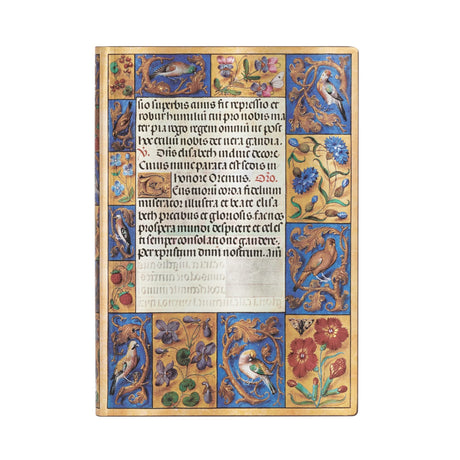 sio superbis cuius fit repressio et
robur humiliū tui pro nobis ma
ter pia rogo regem omniū ut post
hoc exiliū nobis det uera gaudia.
V. Dn̄s elisabeth induit decore
Cuius nunc parata est sedis in
honore Oremus. Oro.
Deus tuorū corda fidelium
miserator illustra et beate elisa
beth precibus et gloriosis. facnos
prospera mundi despicere et celes
ti semper consolatione gaudere.
Per xpristum dnm nostrum. am